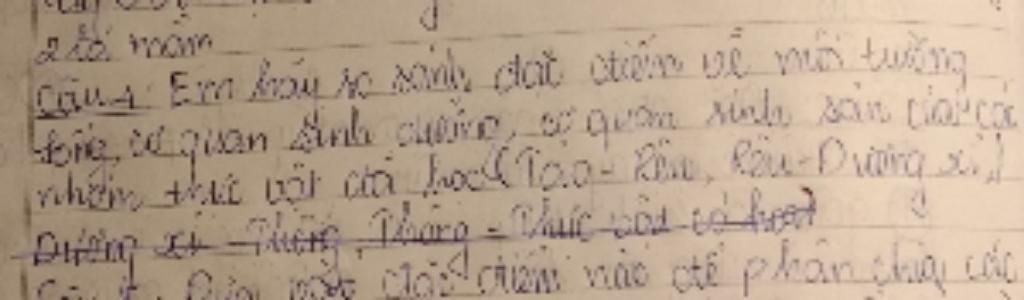 2 lá mầm
Câu 4: Em hãy so sánh đặc điểm về môi trường
sống, cơ quan sinh dưỡng, cơ quan sinh sản của các
nhóm thực vật đã học (Tảo - Rêu, Rêu - Dương xỉ,)
Dương xỉ - Thông, Thông - Thực vật có hoa)
Dựa vào đặc điểm nào để phân chia các